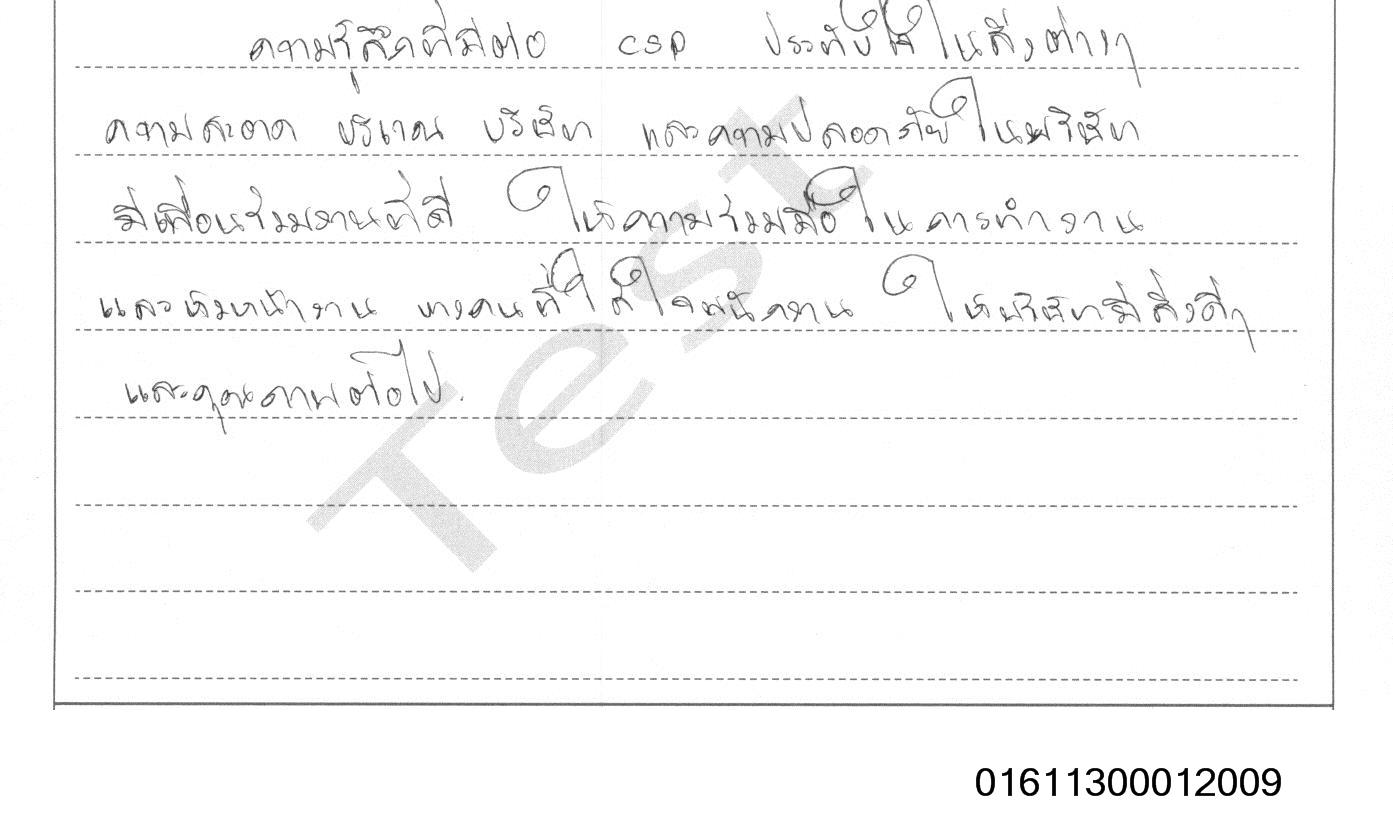 ความรู้สึกที่มีต่อ CSP ประทับใจในสิ่งต่างๆ
ความสะอาด บริเวณ บริษัท และความปลอดภัยในบริษัท
มีเพื่อนร่วมงานที่ดี ให้ความร่วมมือในการทำงาน
และหัวหน้างาน ทุกคนที่ใส่ใจพนักงาน ให้บริษัทมีสิ่งดีๆ
และคุณภาพต่อไป.
Test
01611300012009